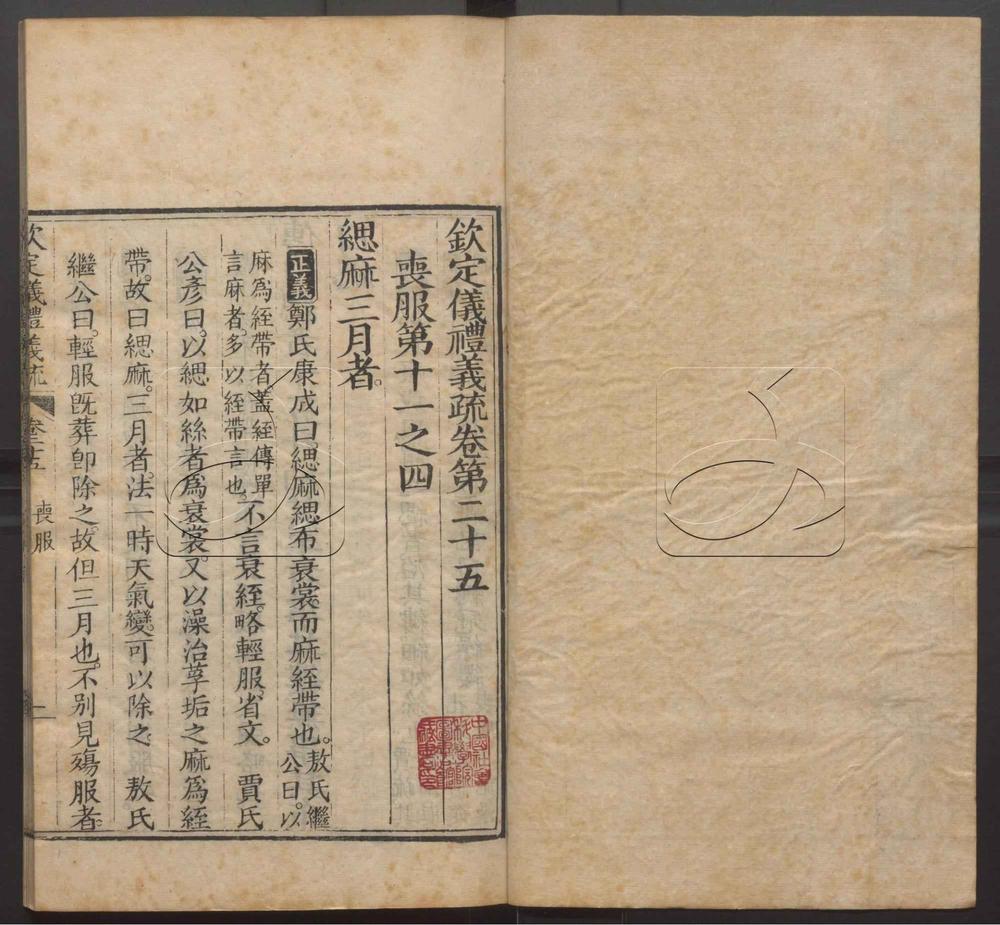 欽定儀禮義疏卷第二十五
喪服第十一之四
緦麻三月者。
正義鄭氏康成曰。緦麻緦布衰裳而麻絰帶也。敖氏繼公曰。以
麻爲絰帶者。蓋絰傳單言麻者。多以絰帶言也。不言衰絰。略輕服。省文。賈氏
公彥曰。以緦如絲者爲衰裳。又以澡治莩垢之麻爲絰
帶。故曰緦麻。三月者。法一時天氣變。可以除之。敖氏
繼公曰。輕服旣葬卽除之。故但三月也。不別見殤服者。
欽定儀禮義疏
卷二十五
喪服
一
中國社會科學院圖書館藏書印